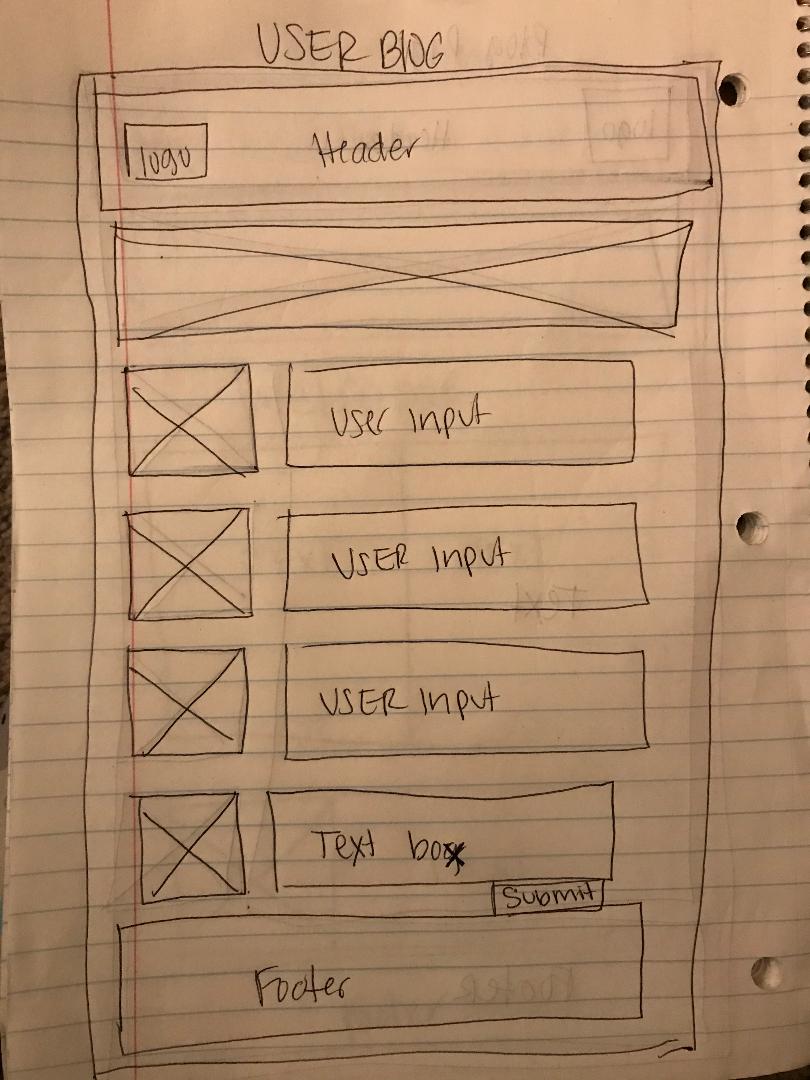 USER BLOG
logo
Header
User Input
USER Input
USER Input
Text box
Submit
Footer